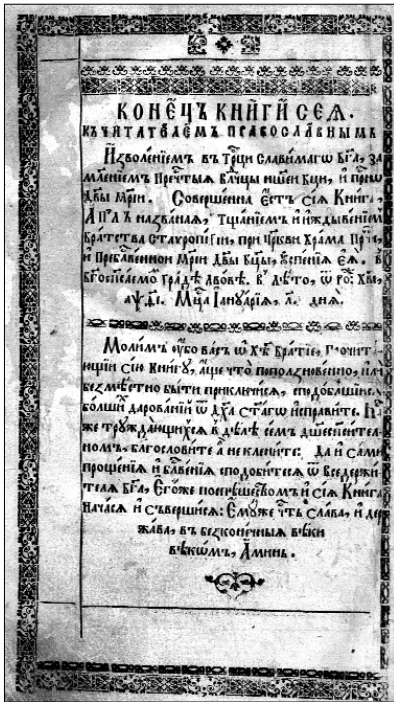 КОНЕ́ЦЪ КНИ́ГИ СЕѦ̀.
КЪ ЧИТА́ТЕЛЕМЪ ПРАВОСЛА́ВНЫМЪ
И҆зволе́нїемъ въ Трⷪ҇ци Сла́вимагѡ Бг҃а, За
мле́нїемъ Пречⷭ҇тыѧ Влⷣчцы нш҃еи Бц҃и,
Дв҃ы Мр҃їи. Соверше́нна є҆́стъ сїѧ̀ Кни́га,
А҆пⷭ҇лъ назва́наѧ, Тща́нїемъ и҆ И҆ждыве́нїемъ
Бра́тства Стаѵропигїи, при Цр҃кви Хра́ма
и҆ Пребл҃гве́нной Мр҃їи Дв҃ы Бц҃ы, ᲂу҆спе́нїѧ є҆ѧ̀.
Бг҃оспаса́емо Гра́дѣ Лво́вѣ. лѣ́то, ѿ
Мцⷭ҇а І҆аннꙋа́рїѧ, днѧ̀.
Мо́лимъ ᲂу҆̀бо ва́съ ѡ҆ Хрⷭ҇тѣ̀ Бра́тїе, Прочита́
ющїи сїю̀ Кни́гꙋ, а҆́ще что̀ поползнове́нно, и҆лѝ
безмѣ́стно бы́ти приключи́сѧ, сподо́бльшїисѧ
бо́лши дарова́нїй ѿ Дх҃а ст҃а́гѡ и҆спра́вите.
же трꙋжда́ющихсѧ в̾ дѣ́лѣ се́мъ дш҃еспаси́тел
номъ, благослови́те а҆ не клени́те: да̀ и҆ са́ми
проще́нїѧ и҆ блгⷭ҇ве́нїѧ сподо́битесѧ ѿ Вседержи́
телѧ Бг҃а, Є҆гѡ́же поспѣ́шествомъ и҆ сїѧ̀ Кни́га
Нача́сѧ и҆ съверши́сѧ: Є҆мꙋ́же че́сть сла́ва, и҆ дер
жа́ва, въ безконе́чныѧ вѣ́ки
вѣкѡ́мъ, А҆ми́нь.